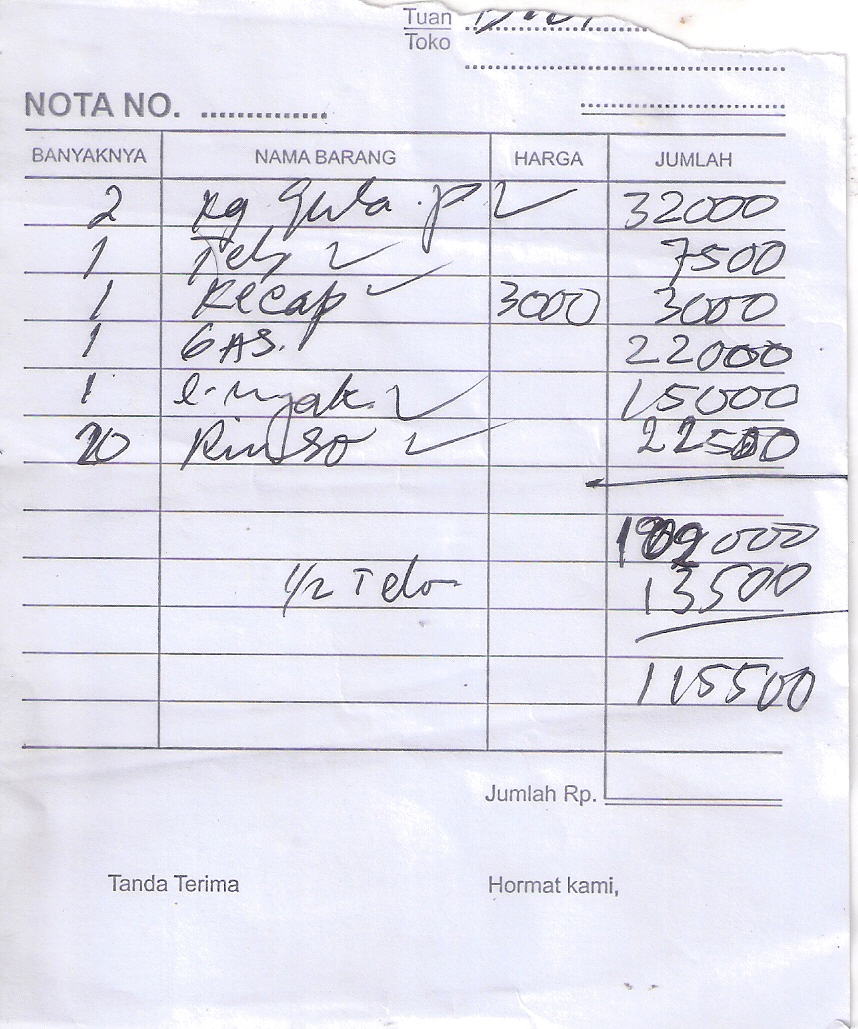 Tuan
Toko
NOTA NO. ..............
BANYAKNYA NAMA BARANG HARGA JUMLAH
2 Kg Gula . P 32000
1 Teh 7500
1 Kecap 3000 3000
1 GAS. 22000
1 15000
20 Rinso 22500
102000
1/2 Telo 13500
115500
Jumlah Rp.
Tanda Terima Hormat kami,